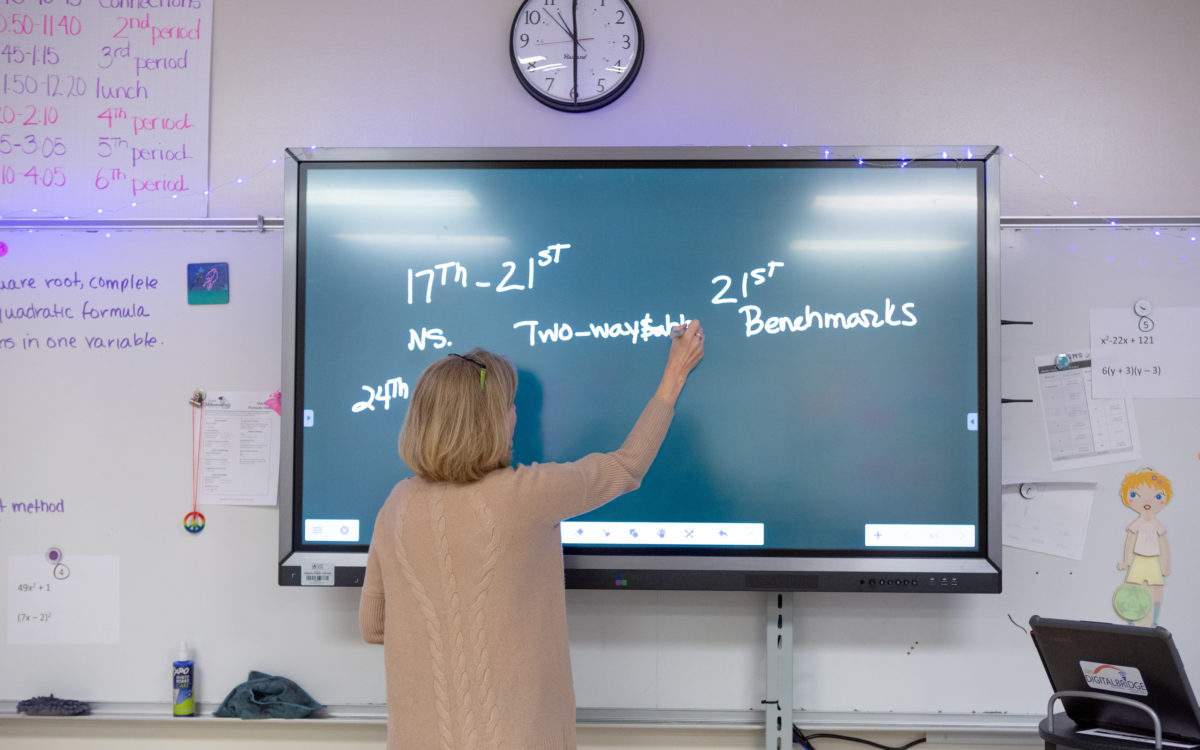 Connections
0:50-11:40 2nd period
45-1:15 3rd period
1:50-12:20 lunch
0-2:10 4th period
5-3:05 5th period
10-4:05 6th period
uare root, complete
quadratic formula
ns in one variable.
t method
4
49x² + 1
(7x – 2)²
EXPO
10 11 1 2
9 3
7 6 5
17Th - 21ST
NS. Two-way
24Th
21ST
Benchmarks
5
x²-22x + 121
6(y + 3)(y – 3)
DIGITALBRIDGE